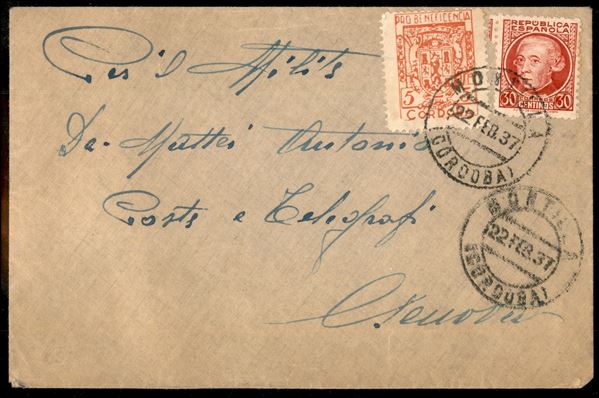 PRO BENEFICENCIA
5
CORDO
REPÚBLICA
ESPAÑOLA
30 CENTIMOS 30
MONTILLA
22 FEB. 37
(CORDOBA)
MONTILLA
22 FEB. 37
(CORDOBA)
Per il
Da Mattei Antonio
Poste e Telegrafi
Genova